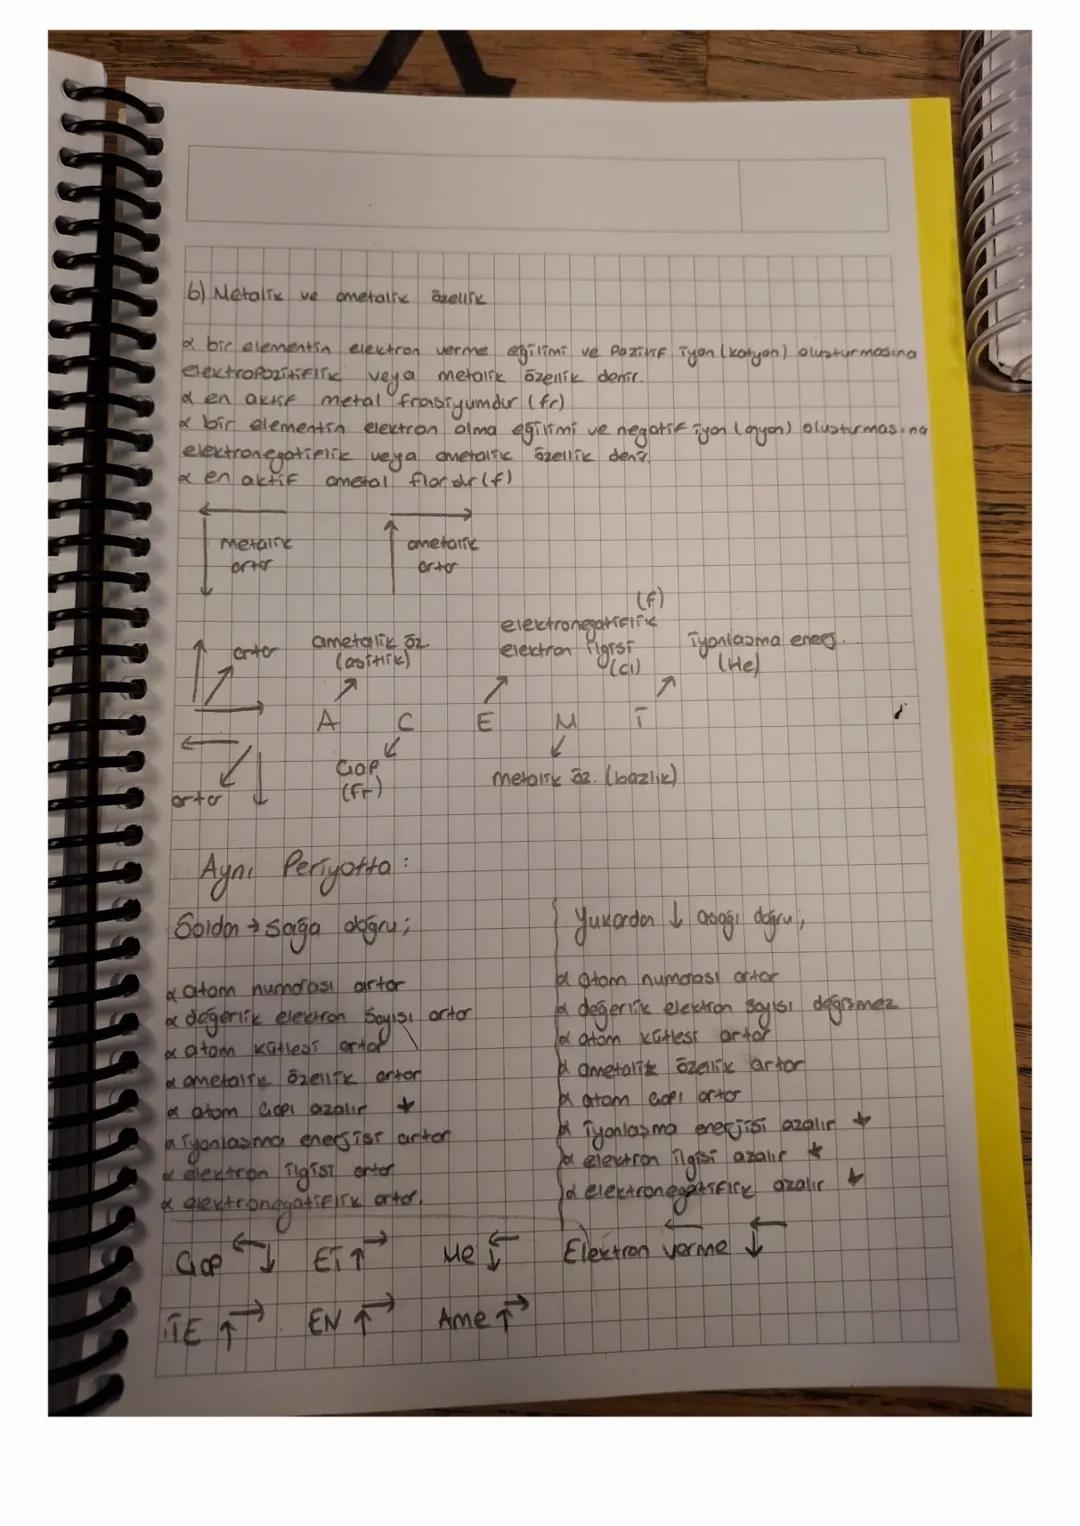 b) Metalik ve ametalik özellik
α bir elementin elektron verme eğilimi ve Pozitif iyon (katyon) oluşturmasına
elektropozitiflik veya metalik özellik denir.
α en aktif metal fransiyumdur (fr)
α bir elementin elektron alma eğilimi ve negatif iyon (anyon) oluşturmasına
elektronegatiflik veya ametalik özellik denir.
α en aktif ametal flordur (f)
← →
↓ metalik artar
↑ ametalik artar
(f)
elektronegatiflik
↑ ↗ artar
ametalik öz. (asitlik)
elektron ilgisi (Cl)
iyonlaşma enerj. (He)
→ ↗ ↗ ↗
A C E M İ
← ↙ ↓ ↙ ↙
artar
Çap (Fr)
metalik öz. (bazlık)
Aynı Periyotta:
Soldan → sağa doğru;
α atom numarası artar
α değerlik elektron sayısı artar
α atom kütlesi artar
α ametalik özellik artar
α atom çapı azalır ★
α iyonlaşma enerjisi artar
α elektron ilgisi artar
α elektronegatiflik artar.
Yukardan ↓ aşağı doğru;
α atom numarası artar
α değerlik elektron sayısı değişmez
α atom kütlesi artar
α ametalik özellik artar
α atom çapı artar
α iyonlaşma enerjisi azalır ★
α elektron ilgisi azalır ★
α elektronegatiflik azalır ★
Çap ←↓ Eİ ↑→ Me ←↓ Elektron verme ←↓
İE ↑→ EN ↑→ Ame ↑→